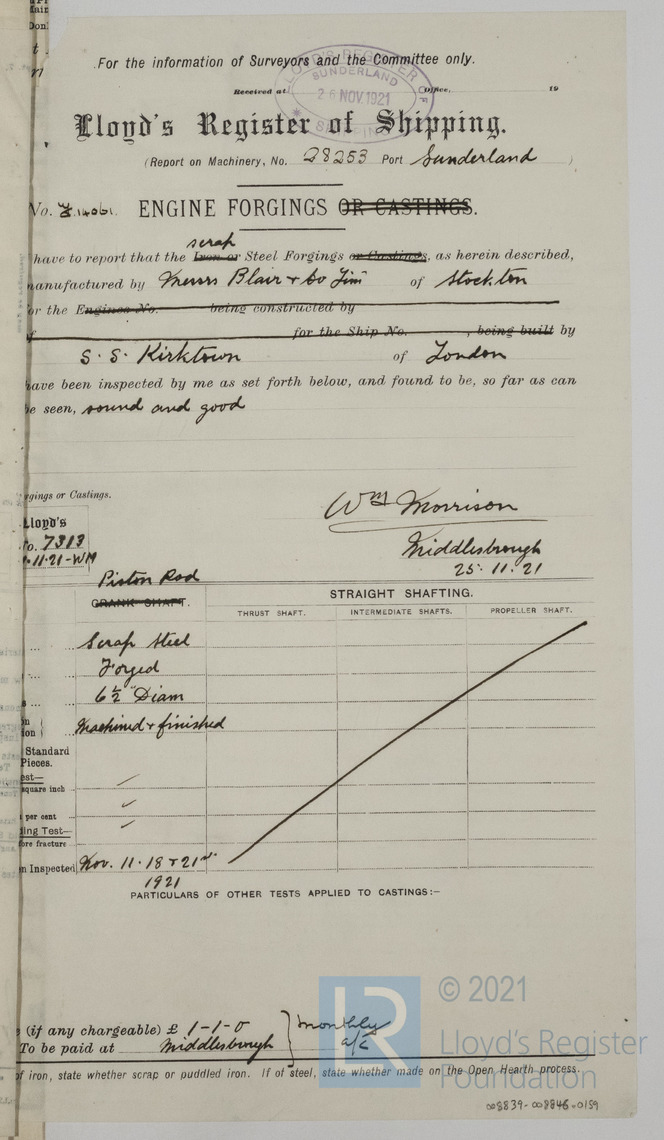 For the information of Surveyors and the Committee only.
LLOYD'S REGISTER OF SHIPPING
SUNDERLAND
26 NOV. 1921
Received at Office, 19
Lloyd's Register of Shipping.
(Report on Machinery, No. 28253 Port Sunderland )
No. 14061. ENGINE FORGINGS OR CASTINGS.
scrap
have to report that the Iron or Steel Forgings or Castings, as herein described,
manufactured by Messrs Blair & Co Lim of Stockton
for the Engines No. being constructed by
of for the Ship No. , being built by
S. S. Kirktown of London
have been inspected by me as set forth below, and found to be, so far as can
be seen, sound and good
rgings or Castings.
Lloyd's
No. 7313
11.21-WM
Wm Morrison
Middlesbrough
25.11.21
Piston Rod
CRANK SHAFT.
STRAIGHT SHAFTING.
THRUST SHAFT. INTERMEDIATE SHAFTS. PROPELLER SHAFT.
Scrap Steel
Forged
6½" Diam
Machined & finished
Standard
Pieces.
est—
square inch
per cent
ing Test—
ore fracture
n Inspected Nov. 11. 18 & 21st
1921
PARTICULARS OF OTHER TESTS APPLIED TO CASTINGS:—
(if any chargeable) £ 1-1-0 monthly
To be paid at Middlesbrough a/c
of iron, state whether scrap or puddled iron. If of steel, state whether made on the Open Hearth process.
LR
© 2021
Lloyd's Register
Foundation
008839-008846-0159